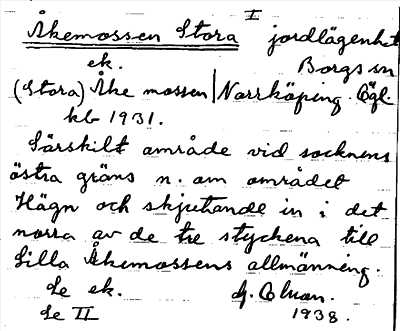 Åkemossen Stora I jordlägenhet
ek. Borgs sn
(Stora) Åke mossen | Norrköping. Ögl.
kb 1931.
Särskilt område vid socknens
östra gräns n. om området
Hägn och skjutande in i det
norra av de tre styckena till
Lilla Åkemossens allmänning.
Se ek.
Se II 1938.